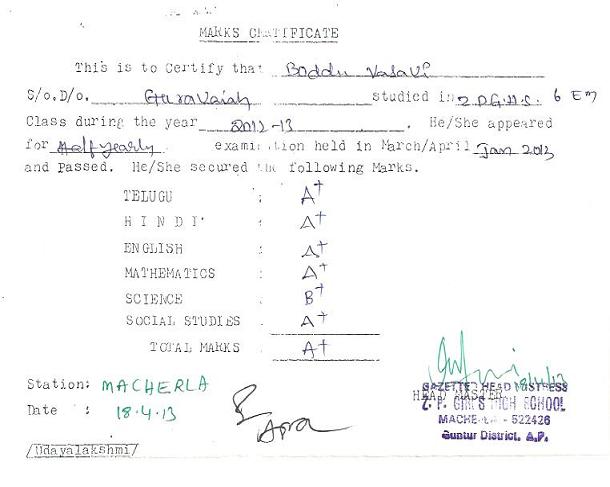 MARKS CERTIFICATE
This is to Certify that Boddu Vasavi
S/o.D/o. Guravaiah studied in Z.P.G.H.S. 6 EM
Class during the year 2012-13. He/She appeared
for Half yearly examination held in March/April Jan 2013
and Passed. He/She secured the following Marks.
TELUGU : A+
HINDI : A+
ENGLISH : A+
MATHEMATICS : A+
SCIENCE : B+
SOCIAL STUDIES : A+
TOTAL MARKS : A+
Station: MACHERLA
Date : 18.4.13
18/4/13
HEAD MASTER
GAZETTED HEAD MISTRESS
Z. P. GIRLS HIGH SCHOOL
MACHERLA - 522426
Guntur District, A.P.
/Udayalakshmi/